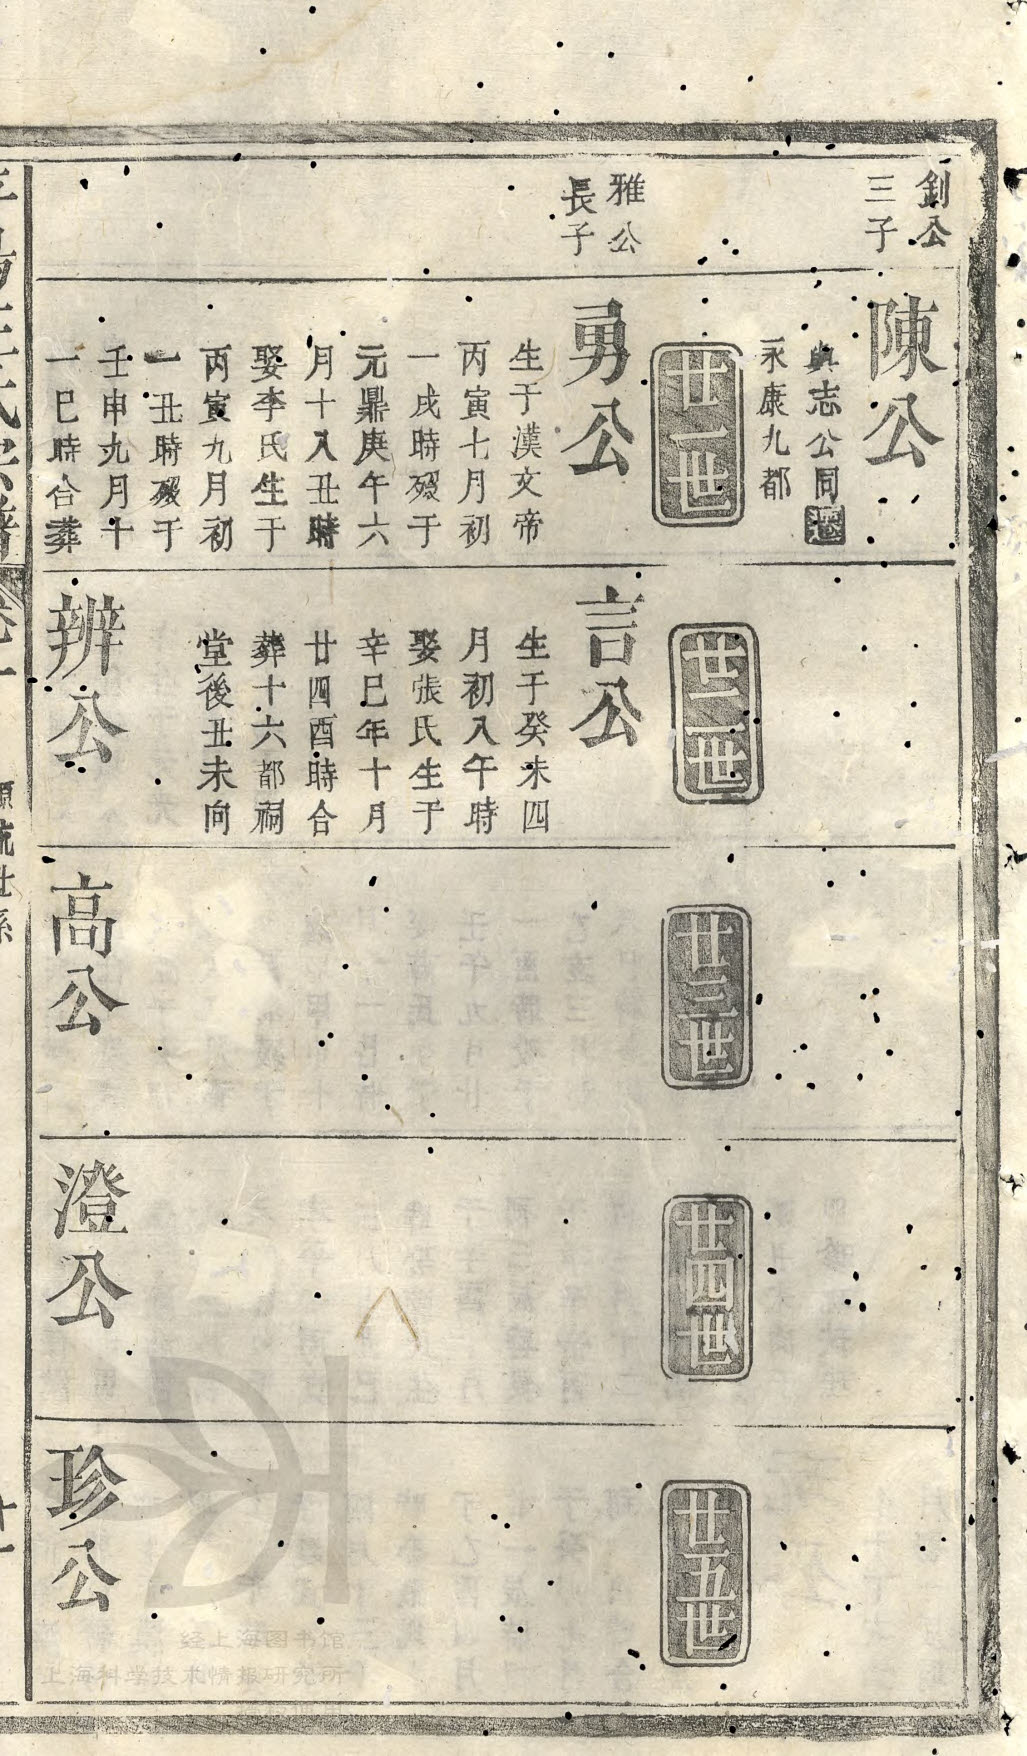 釗公
三子
雅公
長子
陳公
與志公同遷
永康九都
廿一世
勇公
生于漢文帝
丙寅七月初
一戌時殁于
元鼎庚午六
月十八丑時
娶李氏生于
丙寅九月初
一丑時殁于
壬申九月十
一巳時合葬
廿二世
言公
生于癸未四
月初八午時
娶張氏生于
辛巳年十月
廿四酉時合
葬十六都祠
堂後丑未向
辨公
廿三世
高公
廿四世
澄公
廿五世
珍公
卷一
源流世系
十一
经上海图书馆
上海科学技术情报研究所